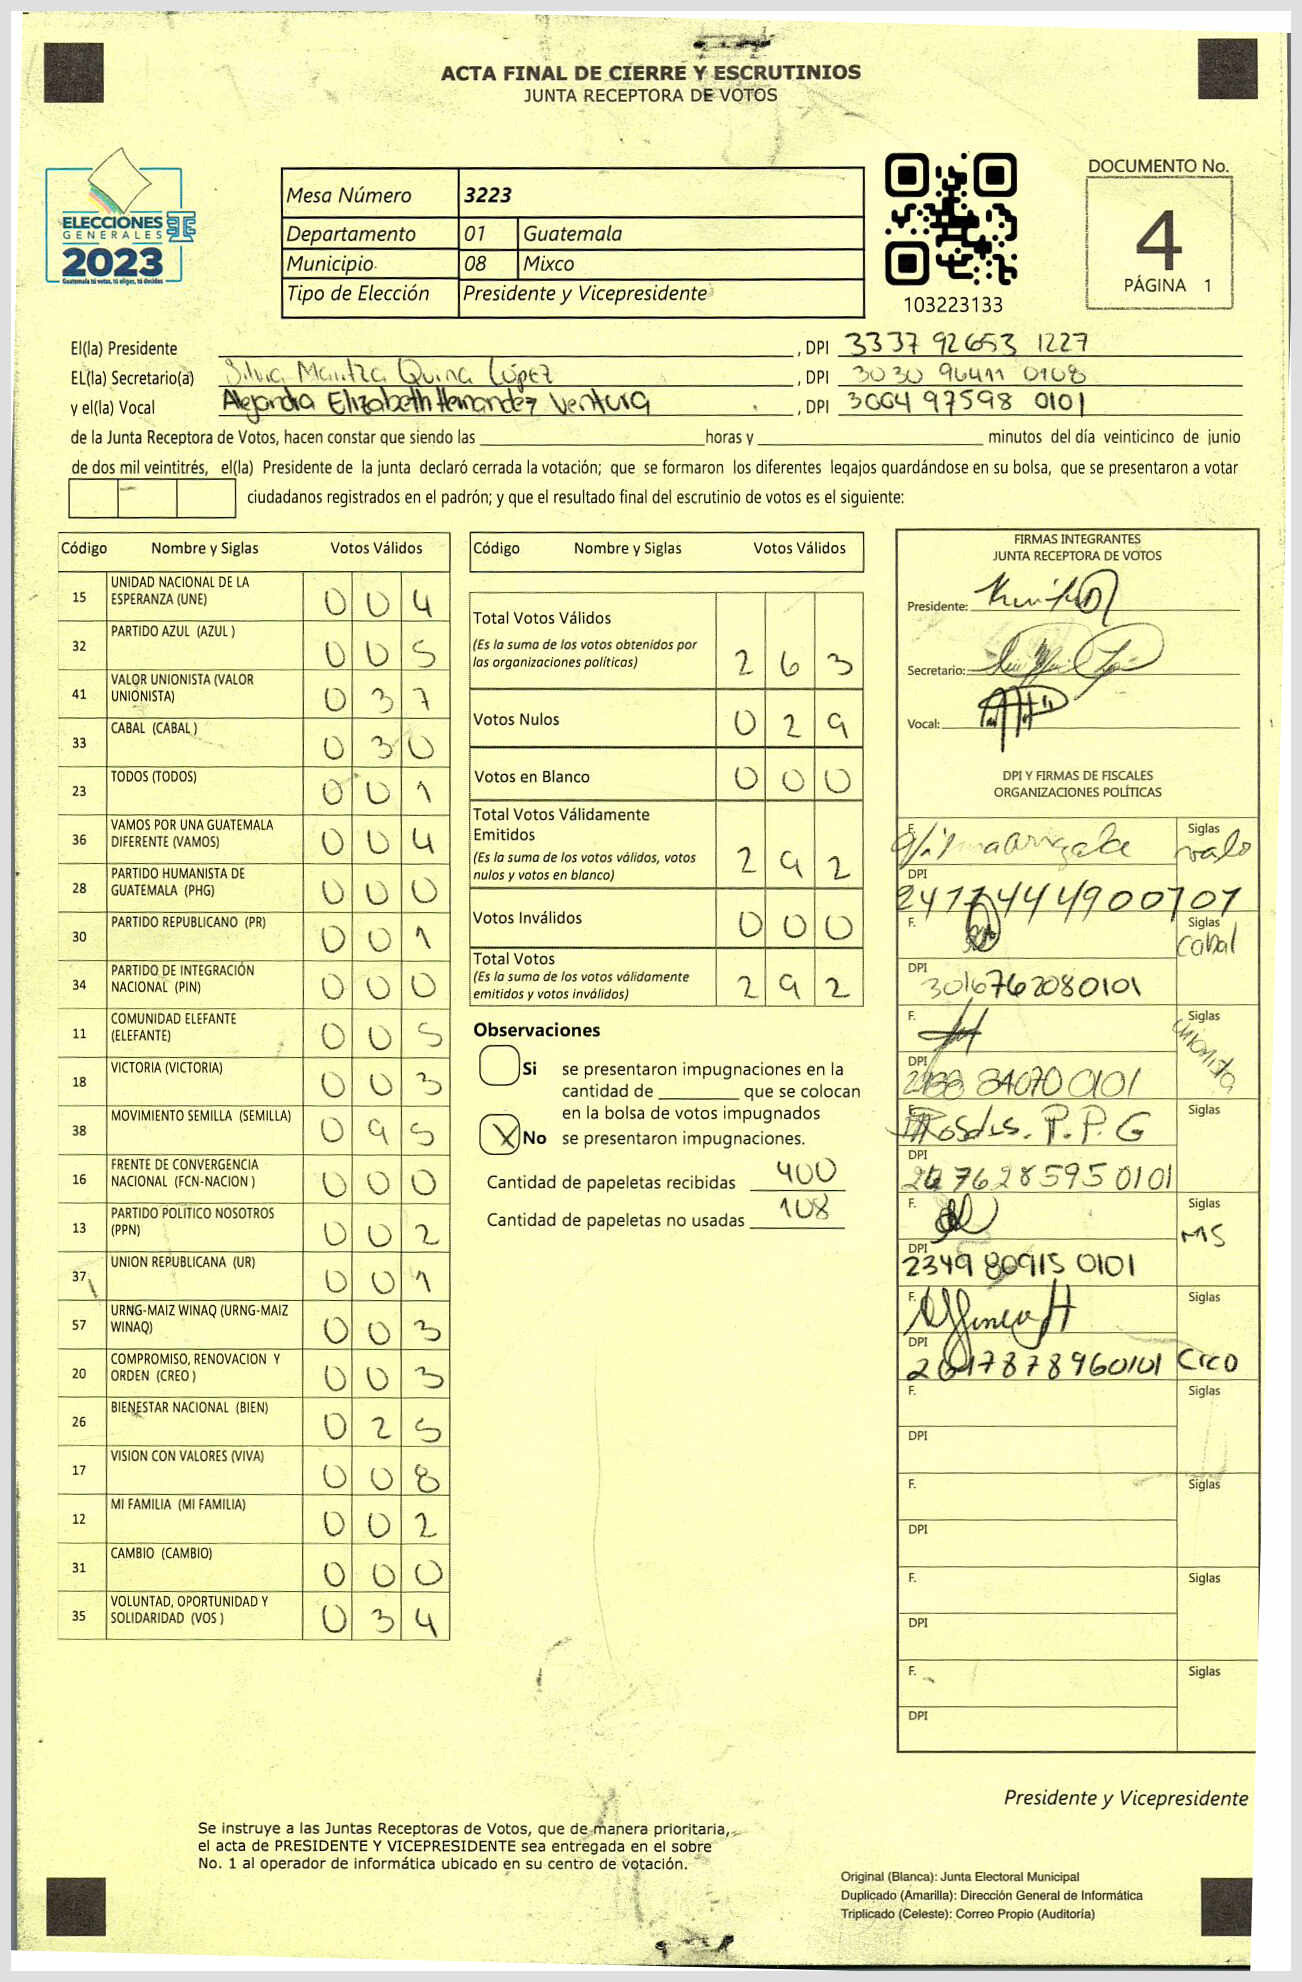 ACTA FINAL DE CIERRE Y ESCRUTINIOS
JUNTA RECEPTORA DE VOTOS
ELECCIONES
GENERALES
2023
Guatemala tú votas, tú eliges, tú decides
Mesa Número 3223
Departamento 01 Guatemala
Municipio 08 Mixco
Tipo de Elección Presidente y Vicepresidente
103223133
DOCUMENTO No.
4
PÁGINA 1
El(la) Presidente , DPI 3337 92653 1227
EL(la) Secretario(a) Silvia Maritza Quina López , DPI 3030 96411 0108
y el(la) Vocal Alejandra Elizabeth Hernandez Ventura , DPI 3004 97598 0101
de la Junta Receptora de Votos, hacen constar que siendo las horas y minutos del día veinticinco de junio
de dos mil veintitrés, el(la) Presidente de la junta declaró cerrada la votación; que se formaron los diferentes legajos guardándose en su bolsa, que se presentaron a votar
ciudadanos registrados en el padrón; y que el resultado final del escrutinio de votos es el siguiente:
Código Nombre y Siglas Votos Válidos
15 UNIDAD NACIONAL DE LA ESPERANZA (UNE) 0 0 4
32 PARTIDO AZUL (AZUL ) 0 0 5
41 VALOR UNIONISTA (VALOR UNIONISTA) 0 3 7
33 CABAL (CABAL ) 0 3 0
23 TODOS (TODOS) 0 0 1
36 VAMOS POR UNA GUATEMALA DIFERENTE (VAMOS) 0 0 4
28 PARTIDO HUMANISTA DE GUATEMALA (PHG) 0 0 0
30 PARTIDO REPUBLICANO (PR) 0 0 1
34 PARTIDO DE INTEGRACIÓN NACIONAL (PIN) 0 0 0
11 COMUNIDAD ELEFANTE (ELEFANTE) 0 0 5
18 VICTORIA (VICTORIA) 0 0 3
38 MOVIMIENTO SEMILLA (SEMILLA) 0 9 5
16 FRENTE DE CONVERGENCIA NACIONAL (FCN-NACION ) 0 0 0
13 PARTIDO POLITICO NOSOTROS (PPN) 0 0 2
37 UNION REPUBLICANA (UR) 0 0 1
57 URNG-MAIZ WINAQ (URNG-MAIZ WINAQ) 0 0 3
20 COMPROMISO, RENOVACION Y ORDEN (CREO ) 0 0 3
26 BIENESTAR NACIONAL (BIEN) 0 2 5
17 VISION CON VALORES (VIVA) 0 0 8
12 MI FAMILIA (MI FAMILIA) 0 0 2
31 CAMBIO (CAMBIO) 0 0 0
35 VOLUNTAD, OPORTUNIDAD Y SOLIDARIDAD (VOS ) 0 3 4
Código Nombre y Siglas Votos Válidos
Total Votos Válidos 2 6 3
(Es la suma de los votos obtenidos por
las organizaciones políticas)
Votos Nulos 0 2 9
Votos en Blanco 0 0 0
Total Votos Válidamente
Emitidos 2 9 2
(Es la suma de los votos válidos, votos
nulos y votos en blanco)
Votos Inválidos 0 0 0
Total Votos 2 9 2
(Es la suma de los votos válidamente
emitidos y votos inválidos)
Observaciones
Si se presentaron impugnaciones en la
cantidad de que se colocan
en la bolsa de votos impugnados
X No se presentaron impugnaciones.
Cantidad de papeletas recibidas 400
Cantidad de papeletas no usadas 108
FIRMAS INTEGRANTES
JUNTA RECEPTORA DE VOTOS
Presidente:
Secretario:
Vocal:
DPI Y FIRMAS DE FISCALES
ORGANIZACIONES POLÍTICAS
F. Siglas valo
DPI
F. Siglas Cabal
DPI 3016762080101
F. Siglas Unionista
DPI
F. Rosales. P.P.G Siglas
DPI
F. Siglas MS
DPI 2349 80915 0101
F. Siglas
DPI Creo
F. Siglas
DPI
F. Siglas
DPI
F. Siglas
DPI
F. Siglas
DPI
Presidente y Vicepresidente
Se instruye a las Juntas Receptoras de Votos, que de manera prioritaria,
el acta de PRESIDENTE Y VICEPRESIDENTE sea entregada en el sobre
No. 1 al operador de informática ubicado en su centro de votación.
Original (Blanca): Junta Electoral Municipal
Duplicado (Amarilla): Dirección General de Informática
Triplicado (Celeste): Correo Propio (Auditoría)